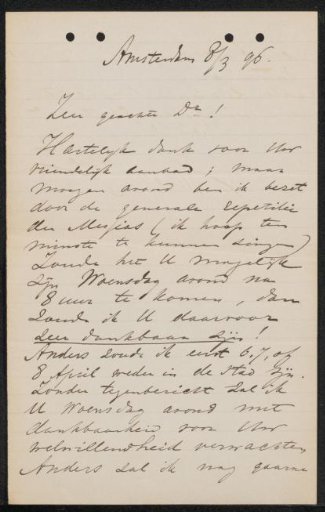 Amsterdam 8/3 96.
Zeer geachte Dr!
Hartelijk dank voor Uw
vriendelijk aanbod; maar
morgen avond ben ik bezet
door de generale repetitie
der Messias (ik hoop ten
minste te kunnen zingen)
Zoude het U mogelijk
zijn Woensdag avond na
8 uur te komen, dan
zoude ik U daarvoor
zeer dankbaar zijn!
Anders zoude ik eerst 6, 7, of
8 April weder in de stad zijn.
Zonder tegenbericht zal ik
U Woensdag avond met
dankbaarheid voor Uw
welwillendheid verwachten
Anders zal ik nog gaarne